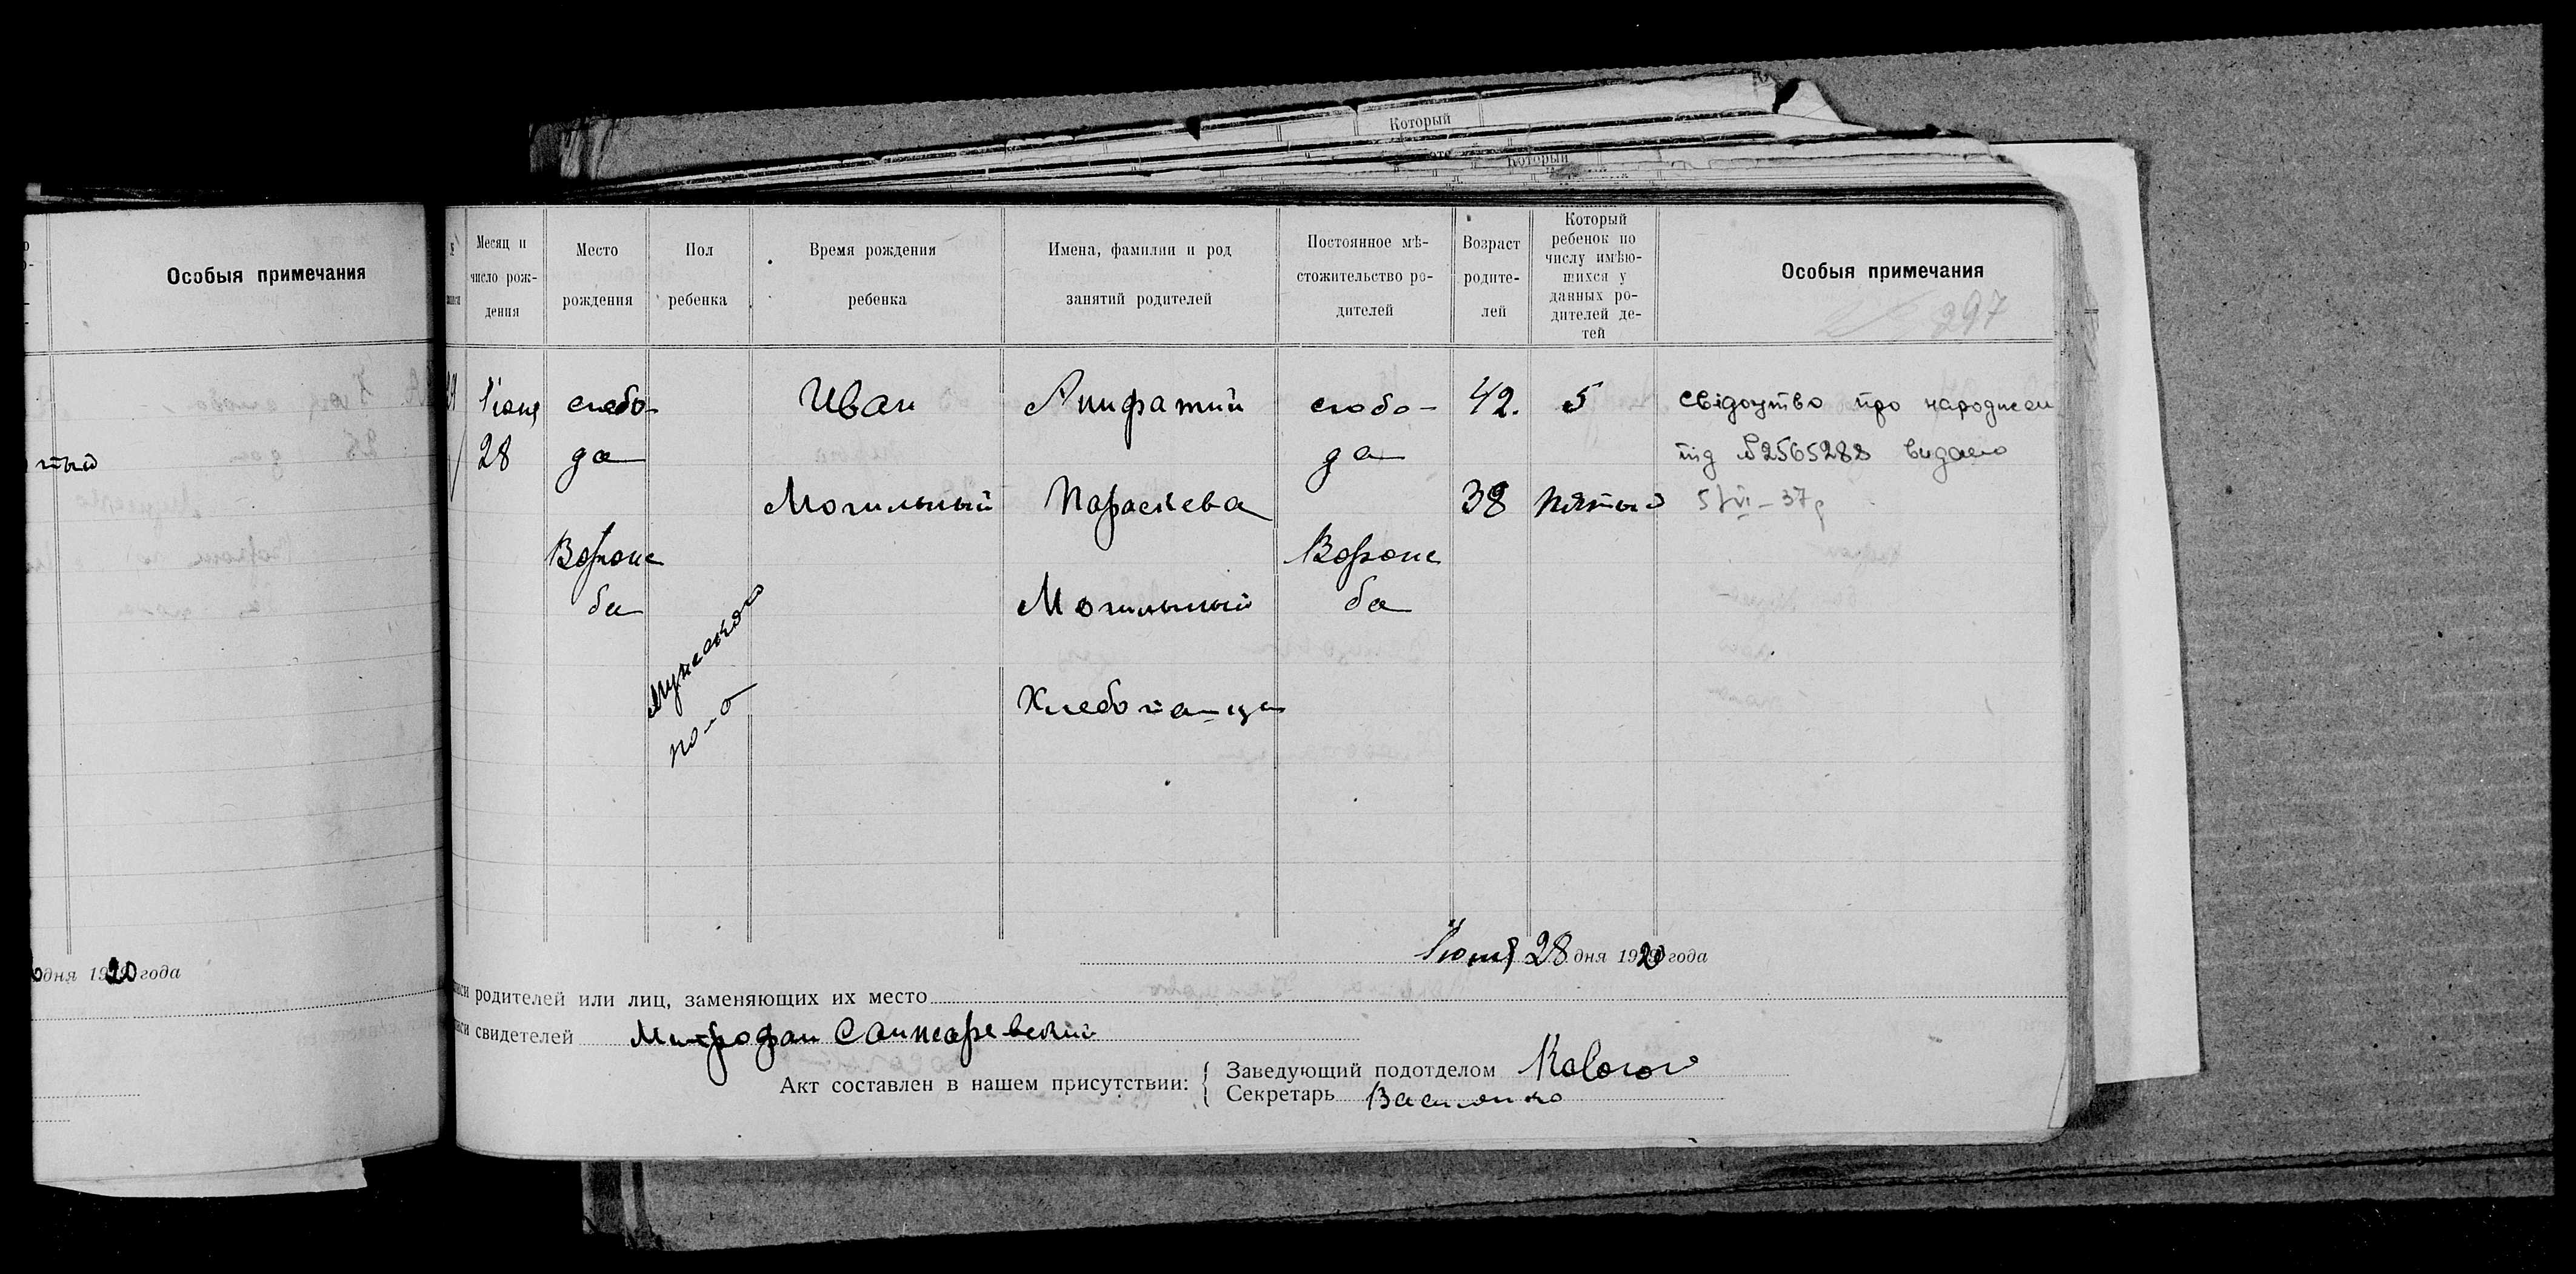 Который
Который
Особыя примечания
тый
дня 1920 года
Месяц и число рож-
дения
Место
рождения
Пол
ребенка
Время рождения
ребенка
Имена, фамилии и род
занятий родителей
Постоянное мѣ-
стожительство ро-
дителей
Возраст
родите-
лей
Который
ребенок по
числу имѣю-
шихся у
данных ро-
дителей де-
тей
Особыя примечания
297
Июня
28
слобо-
да
Вороне
ба
Мужескаго
пола
Иван
Могильный
Параскева
Могильный
Хлебопашцы
слобо-
да
Вороне
ба
42.
38
5
пятый
свідоцтво про народжен
під №2565288 видано
5/VI-37р
Июня 28 дня 1920 года
родителей или лиц, заменяющих их место
свидетелей Митрофан
Акт составлен в нашем присутствии:
Заведующий подотделом
Секретарь Василенко